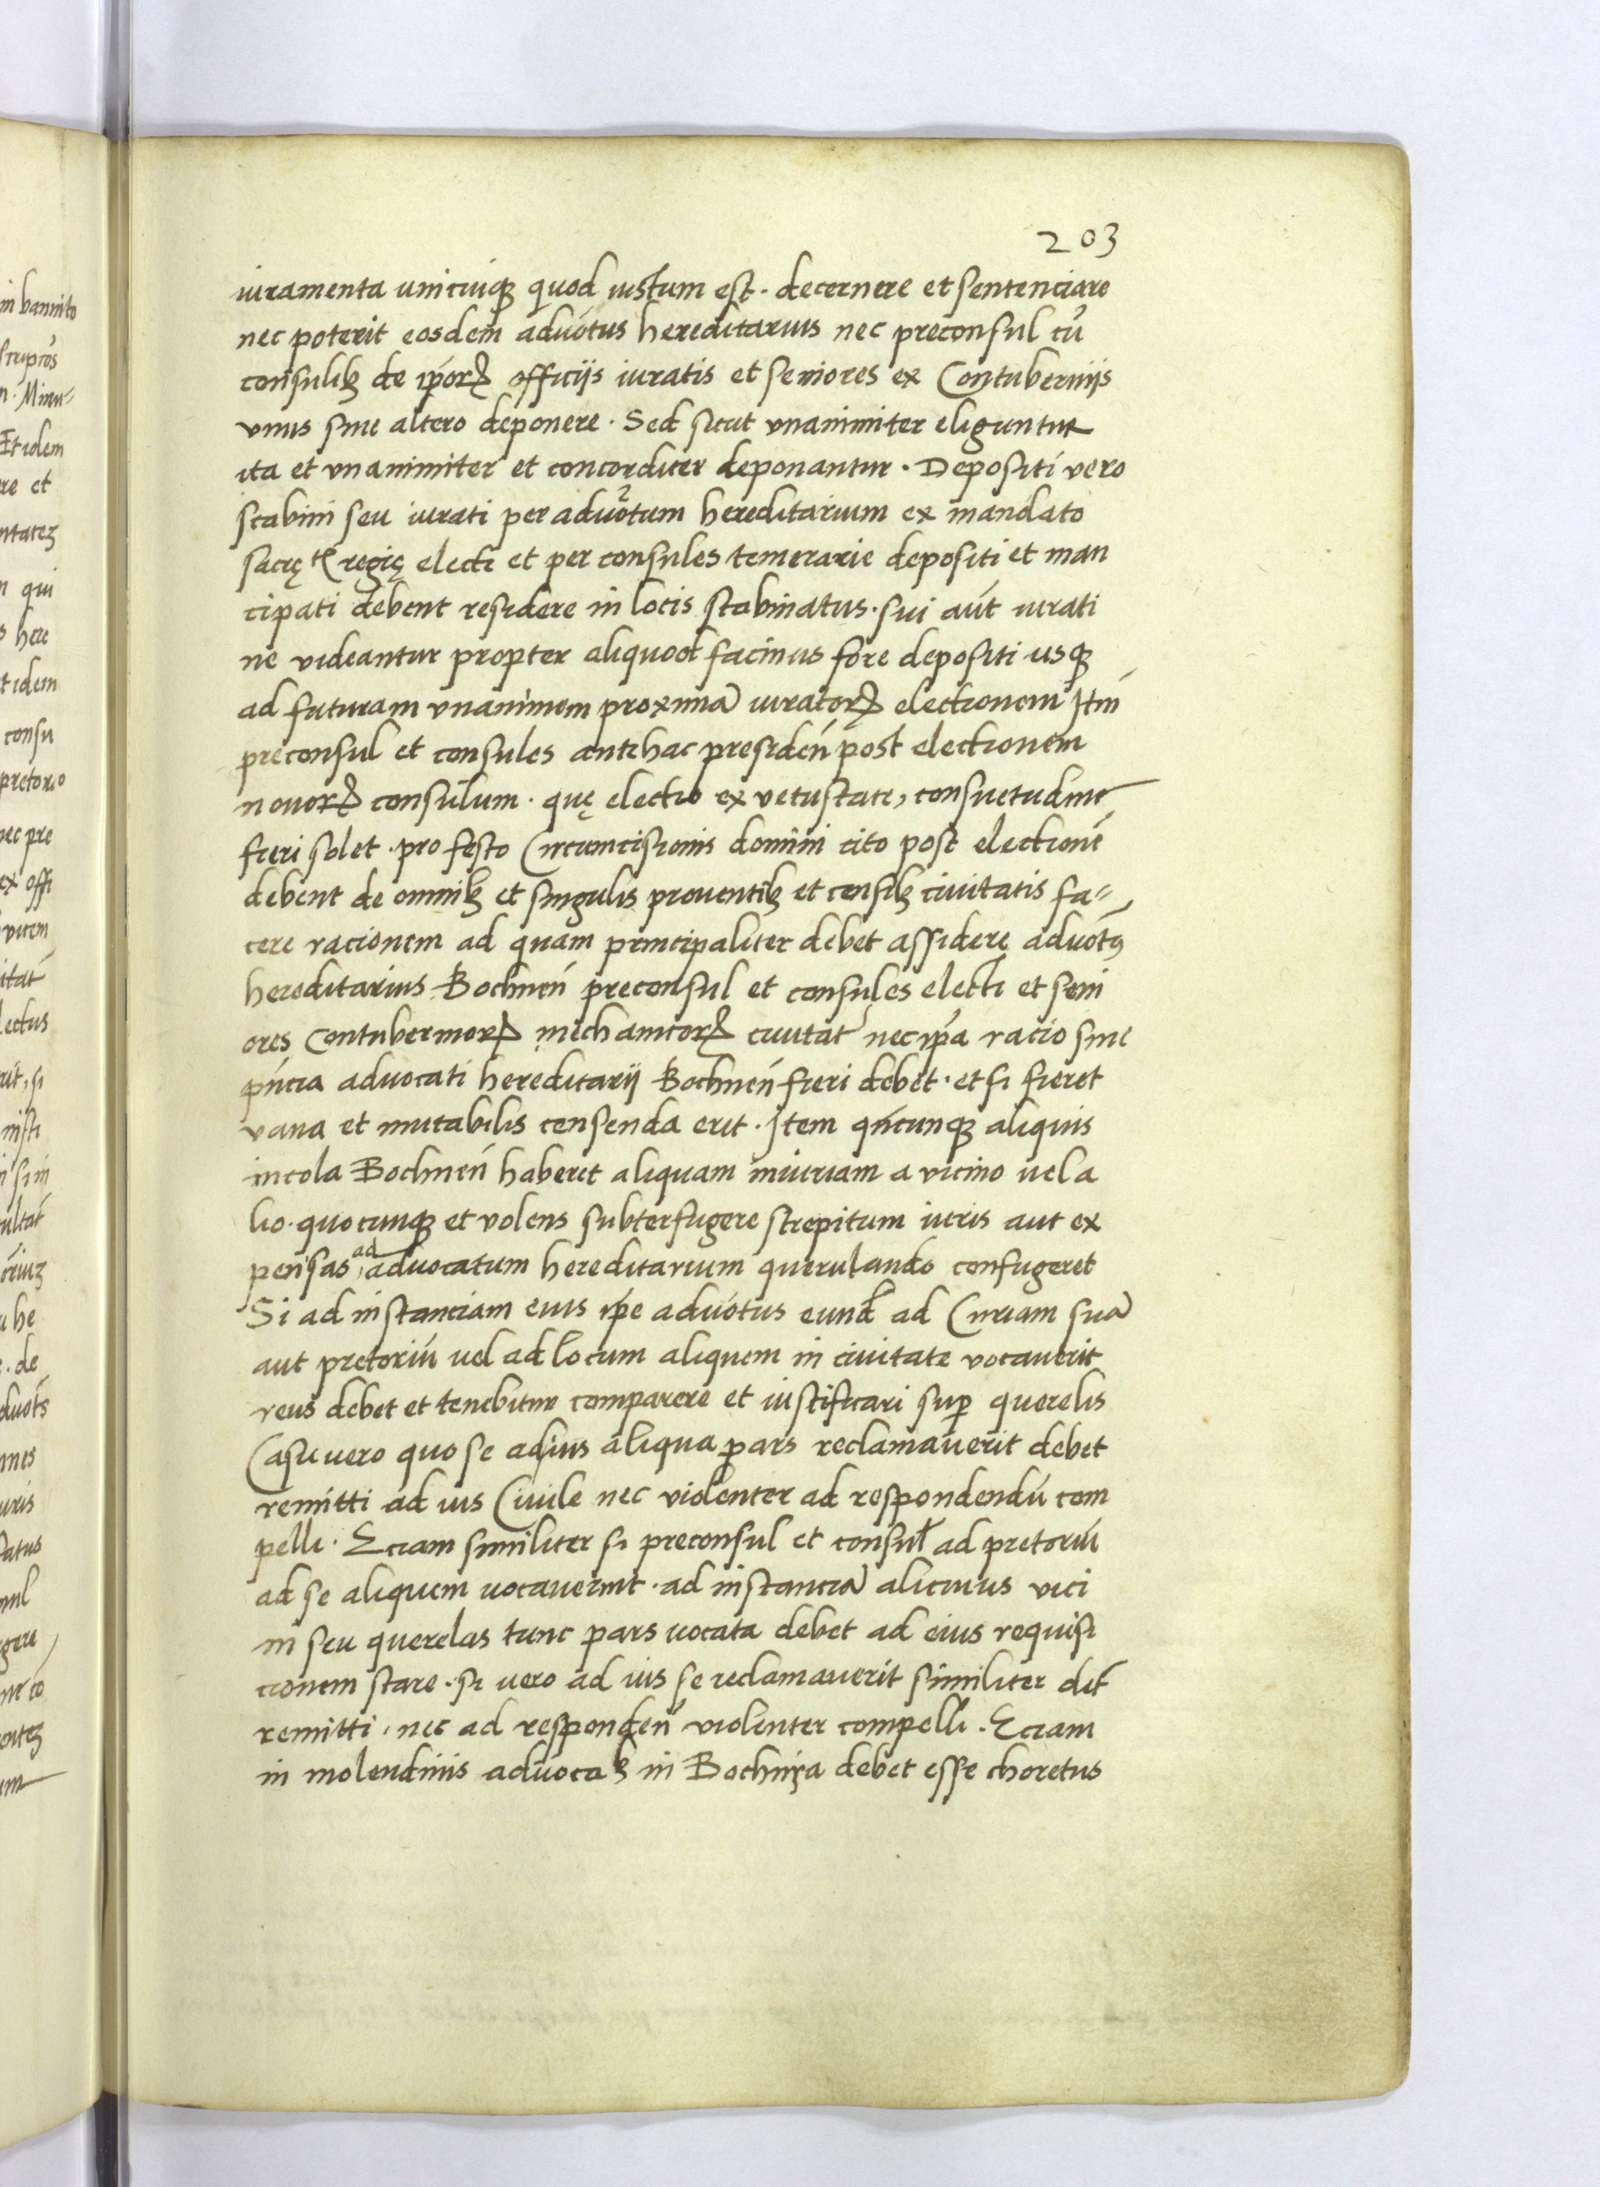 203
iuramenta unicuiqꝫ quod iustum est · decernere et sentenciare
nec poterit eosdem aduōtus hereditarius nec preconsul cū
consulibꝫ de ip̄orꝝ officijs iuratis et seniores ex Contubernijs
vnus sine altero deponere · Sed sicut vnanimiter eliguntur
ita et vnanimiter et concorditer deponantur · Depositi vero
scabini seu iurati per aduōtum hereditarium ex mandato
regię electi et per consules temerarie depositi et man
cipati debent residere in locis scabinatus · sui aūt iurati
ne videantur propter aliquod facinus fore depositi usqꝫ
ad futuram vnanimem proximā iuratorꝝ electionem Itm̄
preconsul et consules antehac presiden̄ post electionem
nouorꝝ consulum · quę electio ex vetustate, consuetudine
fieri solet · pro festo Circumcisionis domini cito post electionē
debent de omnibꝫ et singulis prouentibꝫ et censibꝫ ciuitatis fa=
cere racionem ad quam principaliter debet assidere aduotꝰ
hereditarius Bochnen̄ preconsul et consules electi et seni
ores Contubernorꝝ mechanicorꝝ ciuitat̄ nec ip̄a racio sine
pn̄cia aduocati hereditarij Bochnen̄ fieri debet · et si fieret
vana et mutabilis censenda erit · Item qn̄cunqꝫ aliquis
incola Bochnen̄ haberet aliquam iniuriam a vicino uel a
lio · quocunqꝫ et volens subterfugere strepitum iuris aut ex
ad
pensas aduocatum hereditarium querulando confugeret
Si ad instanciam eius ip̄e aduōtus eund̄ ad Curiam suā
aut pretoriū uel ad locum aliquem in ciuitate vocauerit
reus debet et tenebitur comparere et iustificari suꝑ querelis
Casu vero quo se ad ius aliqua pars reclamauerit debet
remitti ad ius Ciuile nec violenter ad respondendū com
pelli · Eciam similiter si preconsul et consul̄ ad pretoriū
ad se aliquem uocauerint · ad instanciā alicuius vici
ni seu querelas tunc pars uocata debet ad eius requisi
cionem stare · si vero ad ius se reclamauerit similiter det̄
remitti · nec ad responden̄ violenter compelli · Eciam
in molendinis in Bochnia debet esse choretus